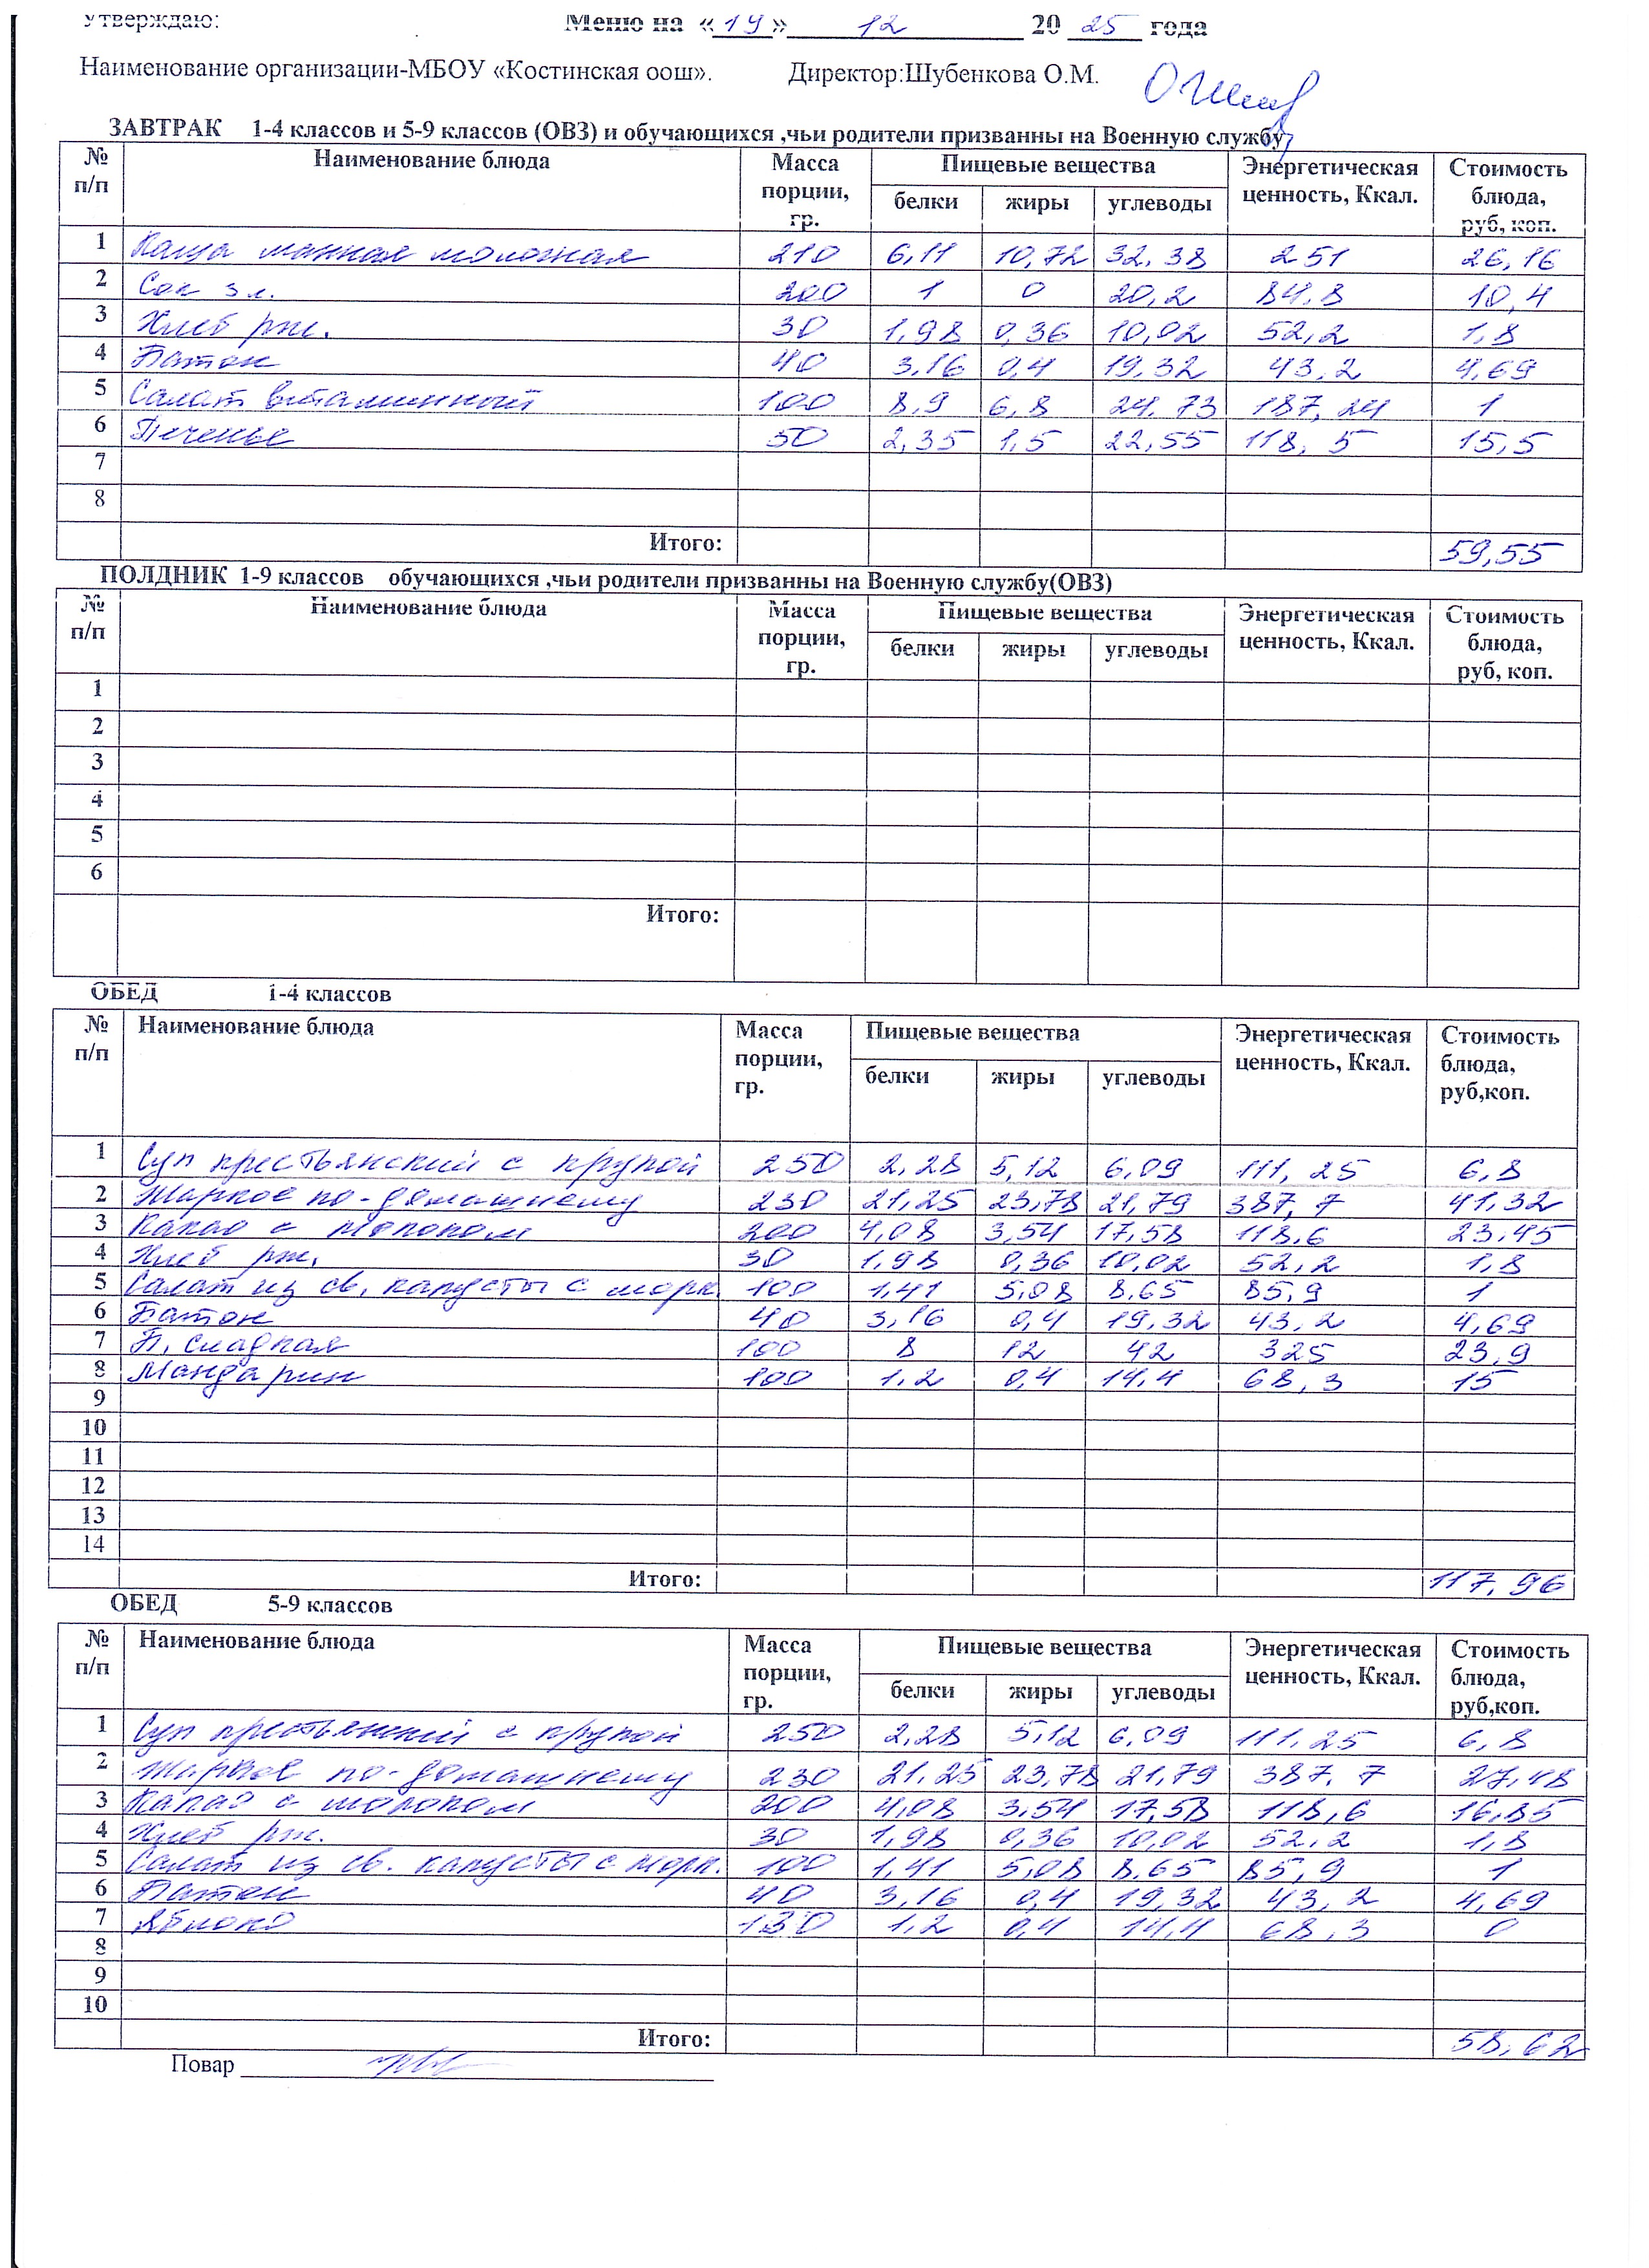 Утверждаю: Меню на «19» 12 20 25 года
Наименование организации-МБОУ «Костинская оош». Директор:Шубенкова О.М.
ЗАВТРАК 1-4 классов и 5-9 классов (ОВЗ) и обучающихся ,чьи родители призванны на Военную службу
№ п/п Наименование блюда Масса порции, гр. Пищевые вещества Энергетическая ценность, Ккал. Стоимость блюда, руб, коп.
белки жиры углеводы
1 Каша манная молочная 210 6,11 10,72 32,38 251 26,16
2 Сок 3 л. 200 1 0 20,2 84,8 10,4
3 Хлеб рж. 30 1,98 0,36 10,02 52,2 1,8
4 Батон 40 3,16 0,4 19,32 43,2 4,69
5 Салат витаминный 100 8,9 6,8 24,73 187,24 1
6 Печенье 50 2,35 1,5 22,55 118,5 15,5
7
8
Итого: 59,55
ПОЛДНИК 1-9 классов обучающихся ,чьи родители призванны на Военную службу(ОВЗ)
№ п/п Наименование блюда Масса порции, гр. Пищевые вещества Энергетическая ценность, Ккал. Стоимость блюда, руб, коп.
белки жиры углеводы
1
2
3
4
5
6
Итого:
ОБЕД 1-4 классов
№ п/п Наименование блюда Масса порции, гр. Пищевые вещества Энергетическая ценность, Ккал. Стоимость блюда, руб,коп.
белки жиры углеводы
1 Суп крестьянский с крупой 250 2,28 5,12 6,09 111,25 6,8
2 Жаркое по-домашнему 230 21,25 23,78 21,79 387,7 41,32
3 Какао с молоком 200 4,08 3,54 17,58 118,6 23,45
4 Хлеб рж. 30 1,98 0,36 10,02 52,2 1,8
5 Салат из св. капусты с морк. 100 1,41 5,08 8,65 85,9 1
6 Батон 40 3,16 0,4 19,32 43,2 4,69
7 П. сладкая 100 8 12 42 325 23,9
8 Мандарин 100 1,2 0,4 14,4 68,3 15
9
10
11
12
13
14
Итого: 117,96
ОБЕД 5-9 классов
№ п/п Наименование блюда Масса порции, гр. Пищевые вещества Энергетическая ценность, Ккал. Стоимость блюда, руб,коп.
белки жиры углеводы
1 Суп крестьянский с крупой 250 2,28 5,12 6,09 111,25 6,8
2 Жаркое по-домашнему 230 21,25 23,78 21,79 387,7 27,48
3 Какао с молоком 200 4,08 3,54 17,58 118,6 16,85
4 Хлеб рж. 30 1,98 0,36 10,02 52,2 1,8
5 Салат из св. капусты с морк. 100 1,41 5,08 8,65 85,9 1
6 Батон 40 3,16 0,4 19,32 43,2 4,69
7 Яблоко 130 1,2 0,4 14,4 68,3 0
8
9
10
Итого: 58,62
Повар